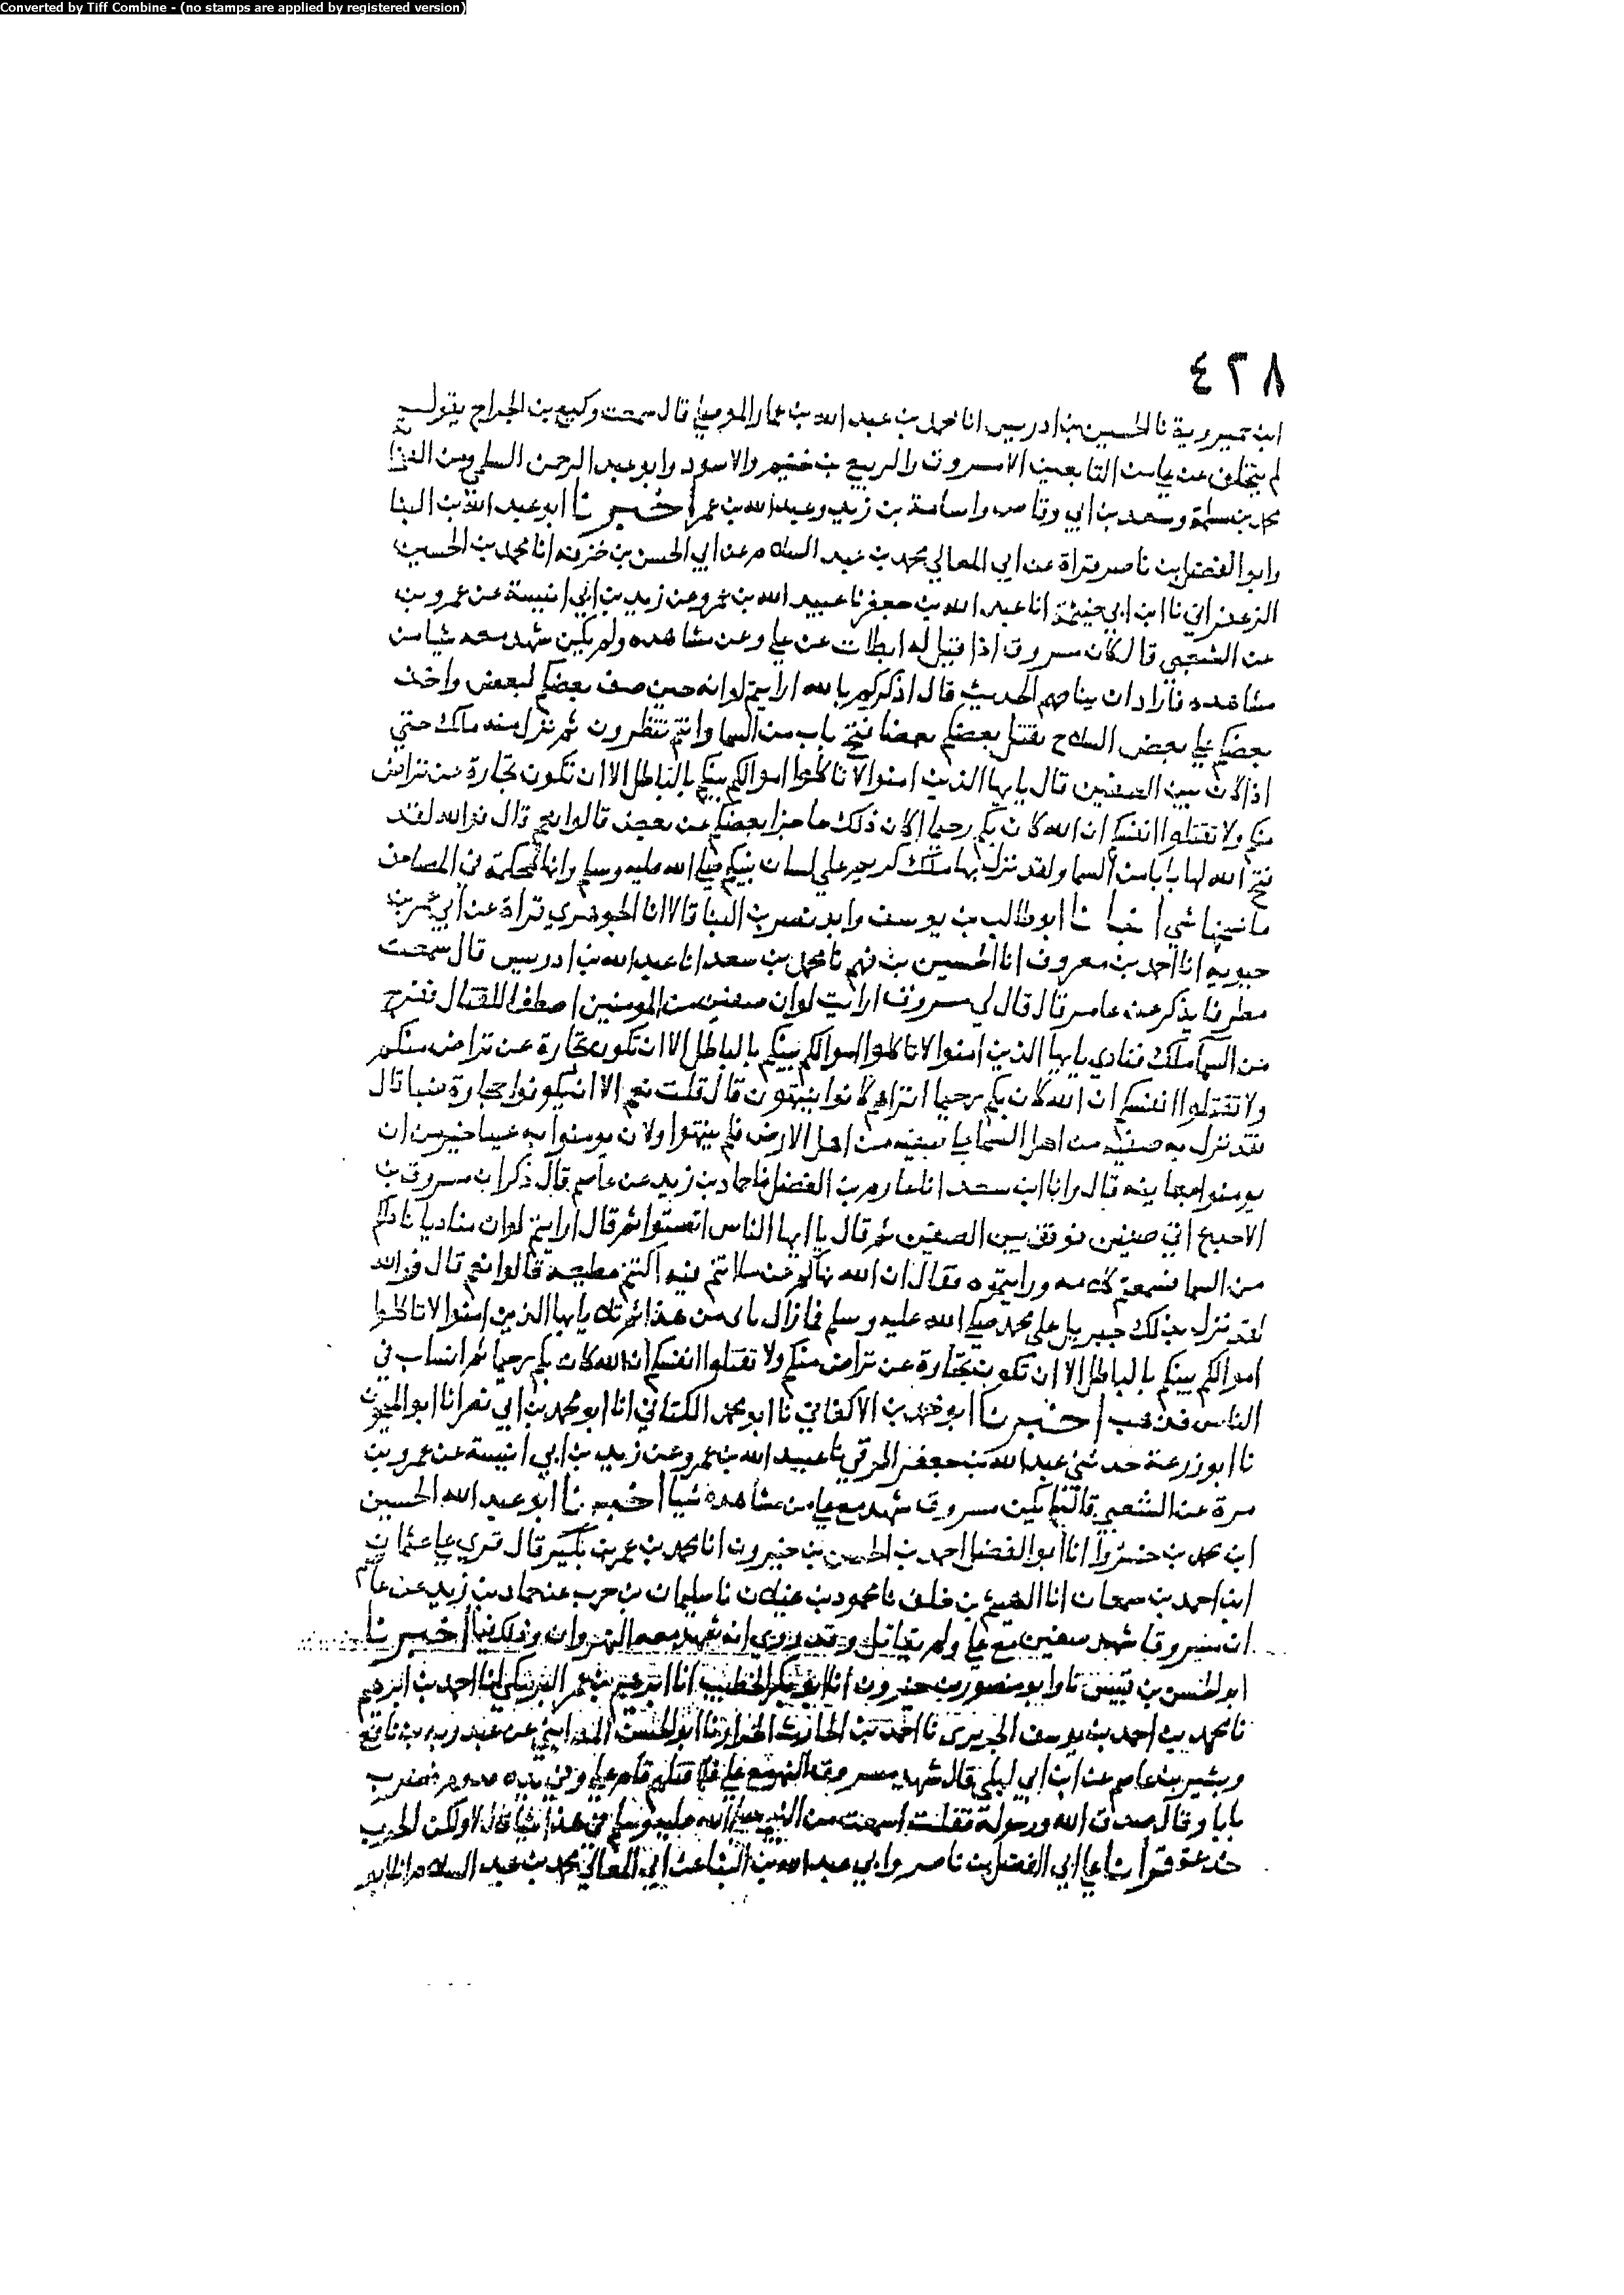 Converted by Tiff Combine - (no stamps are applied by registered version)
٤٢٨
ابن خميروية نا الحسين بن ادريس انا محمد بن عبد الله بن عمار الموصلي قال سمعت وكيع بن الجراح يقول
لم يتخلف عن علي من التابعين الا مسروق والربيع بن خثيم والاسود وابو عبد الرحمن السلمي ومن
محمد بن مسلمة وسعد بن ابي وقاص واسامة بن زيد وعبد الله بن عمر اخبرنا ابو عبد الله بن البنا
وابو الفضل بن ناصر قراة عن ابي المعالي محمد بن عبد السلام عن ابي الحسن بن خزفه انا محمد بن الحسين
الزعفراني نا ابن ابي خيثمة انا عبد الله بن جعفر نا عبيد الله بن عمرو عن زيد بن ابي انيسة عن عمرو بن
عن الشعبي قال كان مسروق اذا قيل له ابطات عن علي وعن مشاهده ولم يكن شهد معه شيا من
مشاهده فاراد ان يناصهم الحديث قال اذكركم بالله ارايتم لو انه حين صف بعضكم لبعض واخذ
بعضكم على بعض السلاح يقتل بعضكم بعضا فتح باب من السما وانتم تنظرون ثم نزل منه ملك حتى
اذا كان بين الصفين قال يايها الذين امنوا لا تاكلوا اموالكم بينكم بالباطل الا ان تكون تجارة عن تراض
منكم ولا تقتلوا انفسكم ان الله كان بكم رحيما اكان ذلك حاجزا بعضكم عن بعض قالوا نعم قال فوالله لقد
فتح الله لها بابا من السما ولقد نزل بها ملك كريم على لسان نبيكم صلى الله عليه وسلم وانها لمحكمة في المصاحف
ما نسخها شي انبا نا ابو طالب بن يوسف وابو نصر بن البنا قالا انا الجوهري قراة عن ابي عمر بن
حيويه انا احمد بن معروف انا الحسين بن فهم نا محمد بن سعد انا عبد الله بن ادريس قال سمعت
مطرفا يذكر عن عامر قال قال لي مسروق ارايت لو ان صفين من المومنين اصطفا للقتال ففرج
من السما ملك فنادى يايها الذين امنوا لا تاكلوا اموالكم بينكم بالباطل الا ان تكون تجارة عن تراض منكم
ولا تقتلوا انفسكم ان الله كان بكم رحيما اتراهم كانوا ينتهون قال قلت نعم الا ان يكونوا حجارة صما قال
فقد نزل به صفيه من اهل السما على صفيه من اهل الارض فلم ينتهوا ولان يومنوا به غيبا خير من ان
يومنوا معاينه قال وانا ابن سعد انا عارم بن الفضل نا حماد بن زيد عن عاصم قال ذكر ان مسروق بن
الاجدع اتى صفين فوقف بين الصفين ثم قال يا ايها الناس انصتوا ثم قال ارايتم لو ان مناديا ناداكم
من السما فسمعتم كلامه ورايتموه فقال ان الله نهاكم عن ما انتم فيه اكنتم مطيعه قالوا نعم قال فوالله
لقد نزل بذلك جبريل على محمد صلى الله عليه وسلم فما زال من هذا ثم تلا يايها الذين امنوا لا تاكلوا
اموالكم بينكم بالباطل الا ان تكون تجارة عن تراض منكم ولا تقتلوا انفسكم ان الله كان بكم رحيما ثم انساب في
الناس فذهب اخبرنا ابو محمد بن الاكفاني نا ابو محمد الكتاني انا ابو محمد بن ابي نصر انا ابو الميمون
نا ابو زرعة حدثني عبد الله بن جعفر الرقي نا عبيد الله بن عمرو عن زيد بن ابي انيسة عن عمرو بن
مرة عن الشعبي قال لم يكن مسروق شهد مع علي من مشاهده شيا اخبرنا ابو عبد الله الحسين
ابن محمد بن خسرو انا ابو الفضل احمد بن الحسن بن خيرون انا محمد بن عمر بن بكير قال قري على عثمان
ابن احمد بن سمعان انا الهيثم بن خلف نا محمود بن غيلان نا سليمان بن حرب عن حماد بن زيد عن عاصم
ان مسروقا شهد صفين مع علي ولم يقاتل وقد روي انه شهد معه النهروان وذلك فيما اخبرنا
ابو الحسن بن قبيس نا وابو منصور بن خيرون انا ابو بكر الخطيب انا ابرهيم بن عمر البرمكي انا احمد بن ابرهيم
نا محمد بن احمد بن يوسف الجريري نا احمد بن الحارث الخزاز نا ابو الحسن المدايني عن عبد ربه بن نافع
وبشير بن عاصم عن ابن ابي ليلى قال شهد مسروق النهر مع علي فلما قتلهم قام علي وفي يده قدوم فضرب
بابا وقال صدق الله ورسوله فقلت اسمعت من النبي صلى الله عليه وسلم في هذا شيا قال لا ولكن الحرب
خدعة قرأت على ابي الفضل بن ناصر وابي عبد الله بن البنا عن ابي المعالي محمد بن عبد السلام انا